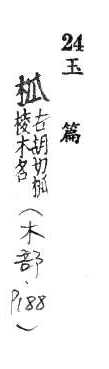 24玉篇
柧 古胡切柧
棱木名
(木部.
P188)